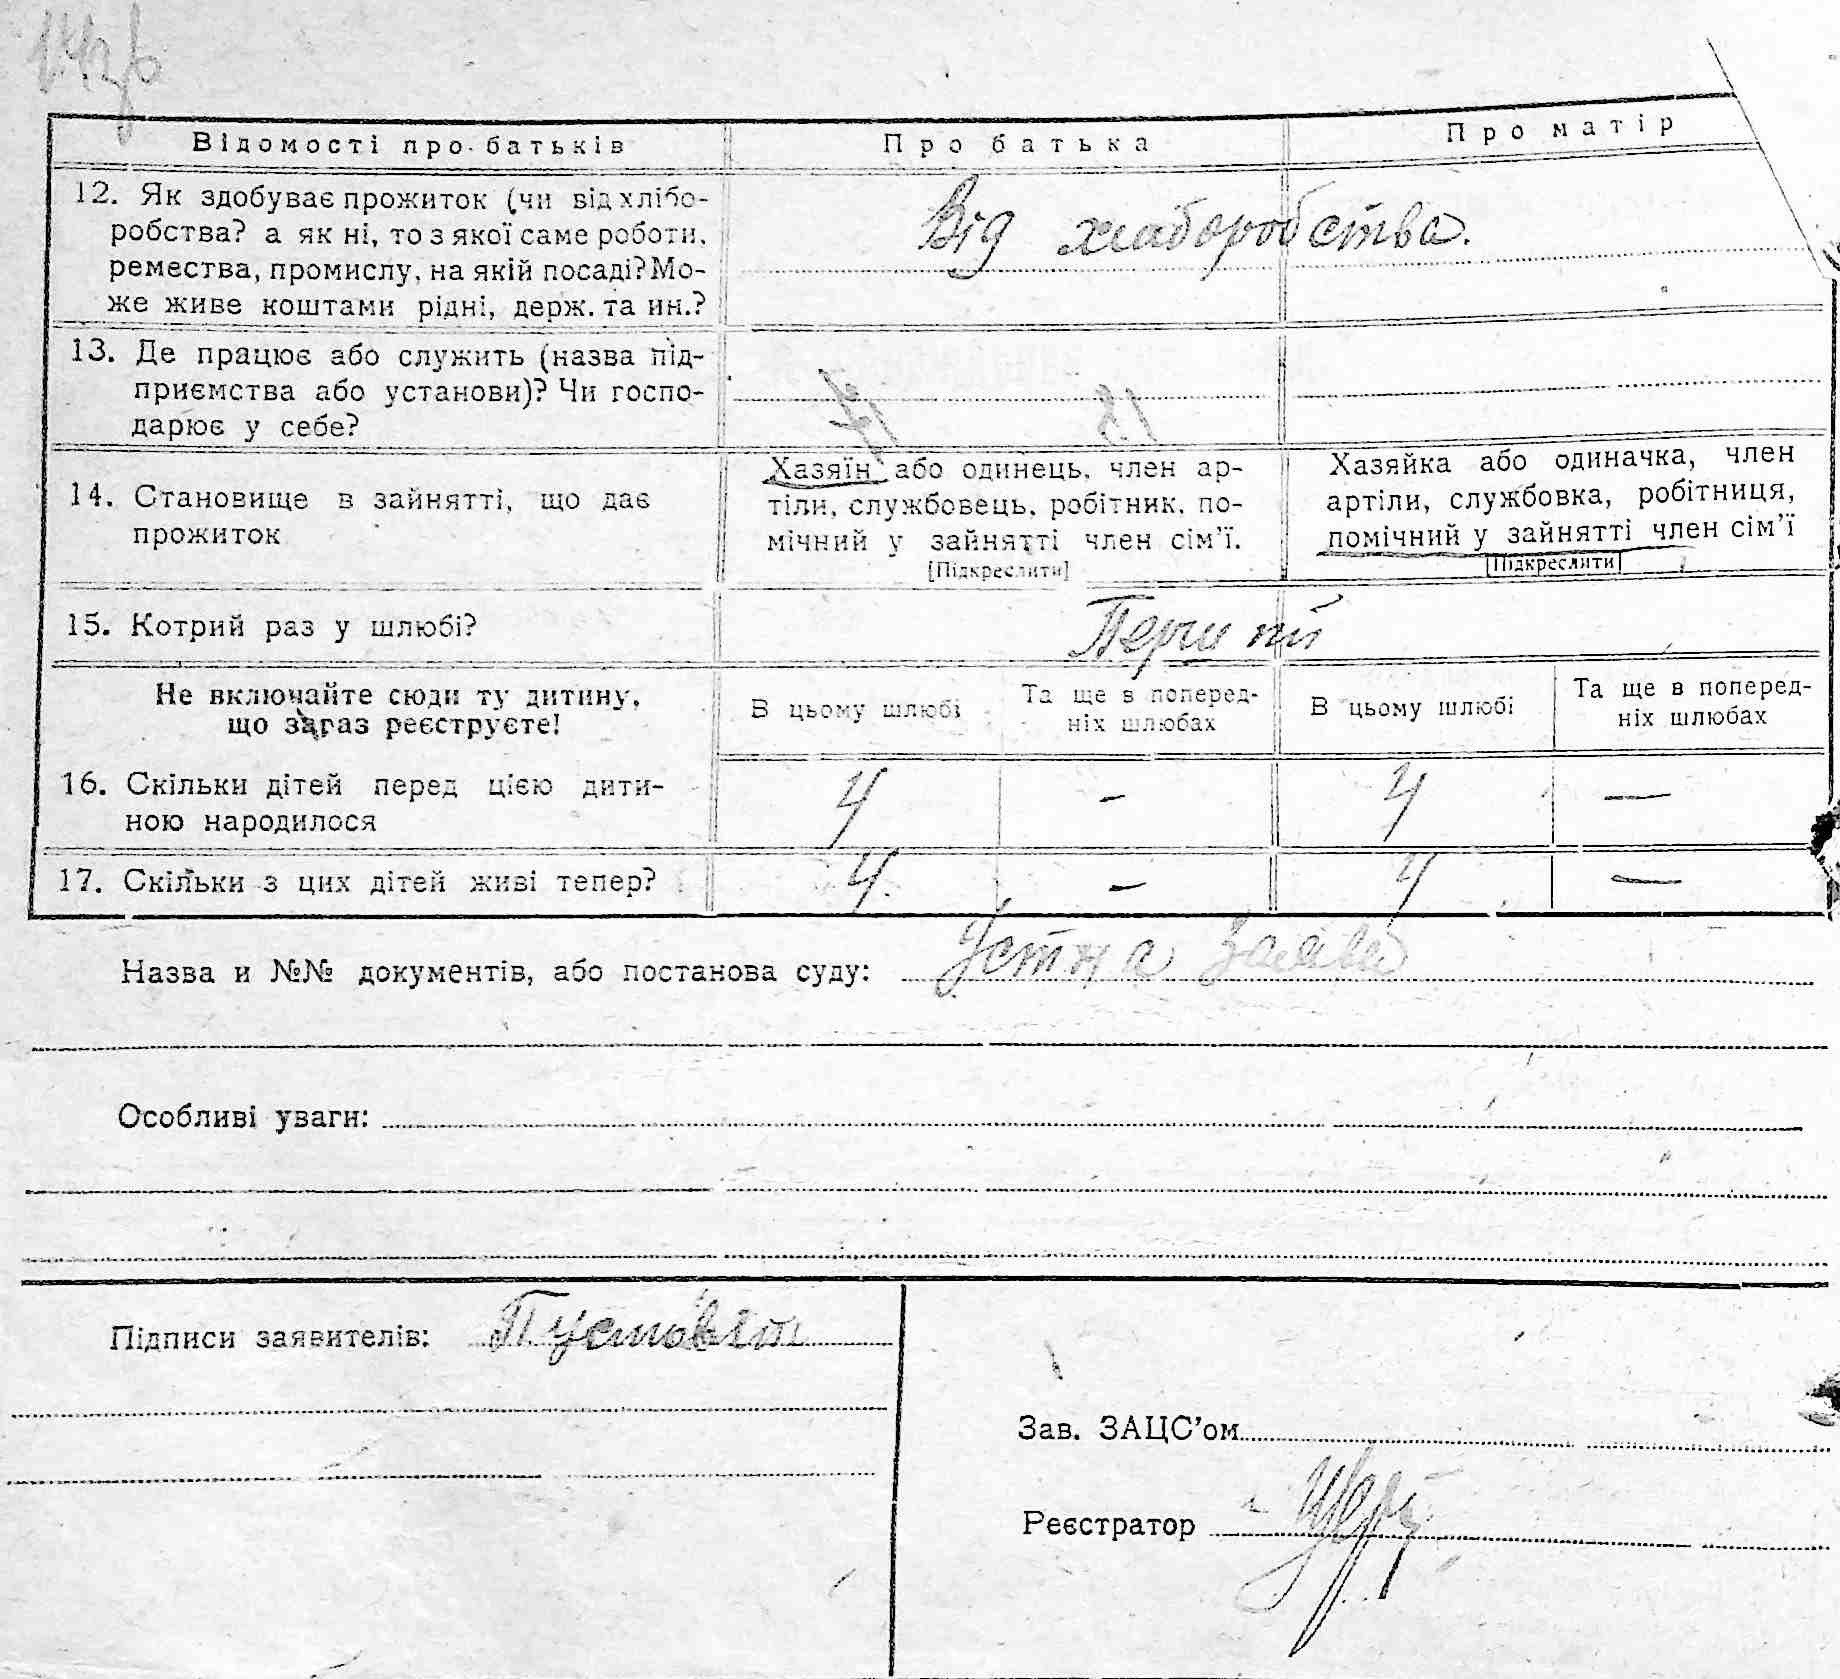 Відомості про батьків Про батька Про матір
12. Як здобуває прожиток (чи від хлібо-
робства? а як ні, то з якої саме роботи,
ремества, промислу, на якій посаді? Мо-
же живе коштами рідні, держ. та ин.?
Від хліборобства.
13. Де працює або служить (назва під-
приємства або установи)? Чи госпо-
дарює у себе?
14. Становище в зайнятті, що дає
прожиток
Хазяїн або одинець, член ар-
тіли, службовець, робітник, по-
мічний у зайнятті член сім'ї.
[Підкреслити]
Хазяйка або одиначка, член
артіли, службовка, робітниця,
помічний у зайнятті член сім'ї
[Підкреслити]
15. Котрий раз у шлюбі? Перший
Не включайте сюди ту дитину,
що зараз реєструєте!
В цьому шлюбі
Та ще в поперед-
ніх шлюбах
В цьому шлюбі
Та ще в поперед-
ніх шлюбах
16. Скільки дітей перед цією дити-
ною народилося
4 – 4 —
17. Скільки з цих дітей живі тепер? 4. – 4 —
Назва и №№ документів, або постанова суду: Устна заява
Особливі уваги:
Підписи заявителів: Пустовіт
Зав. ЗАЦС'ом
Реєстратор